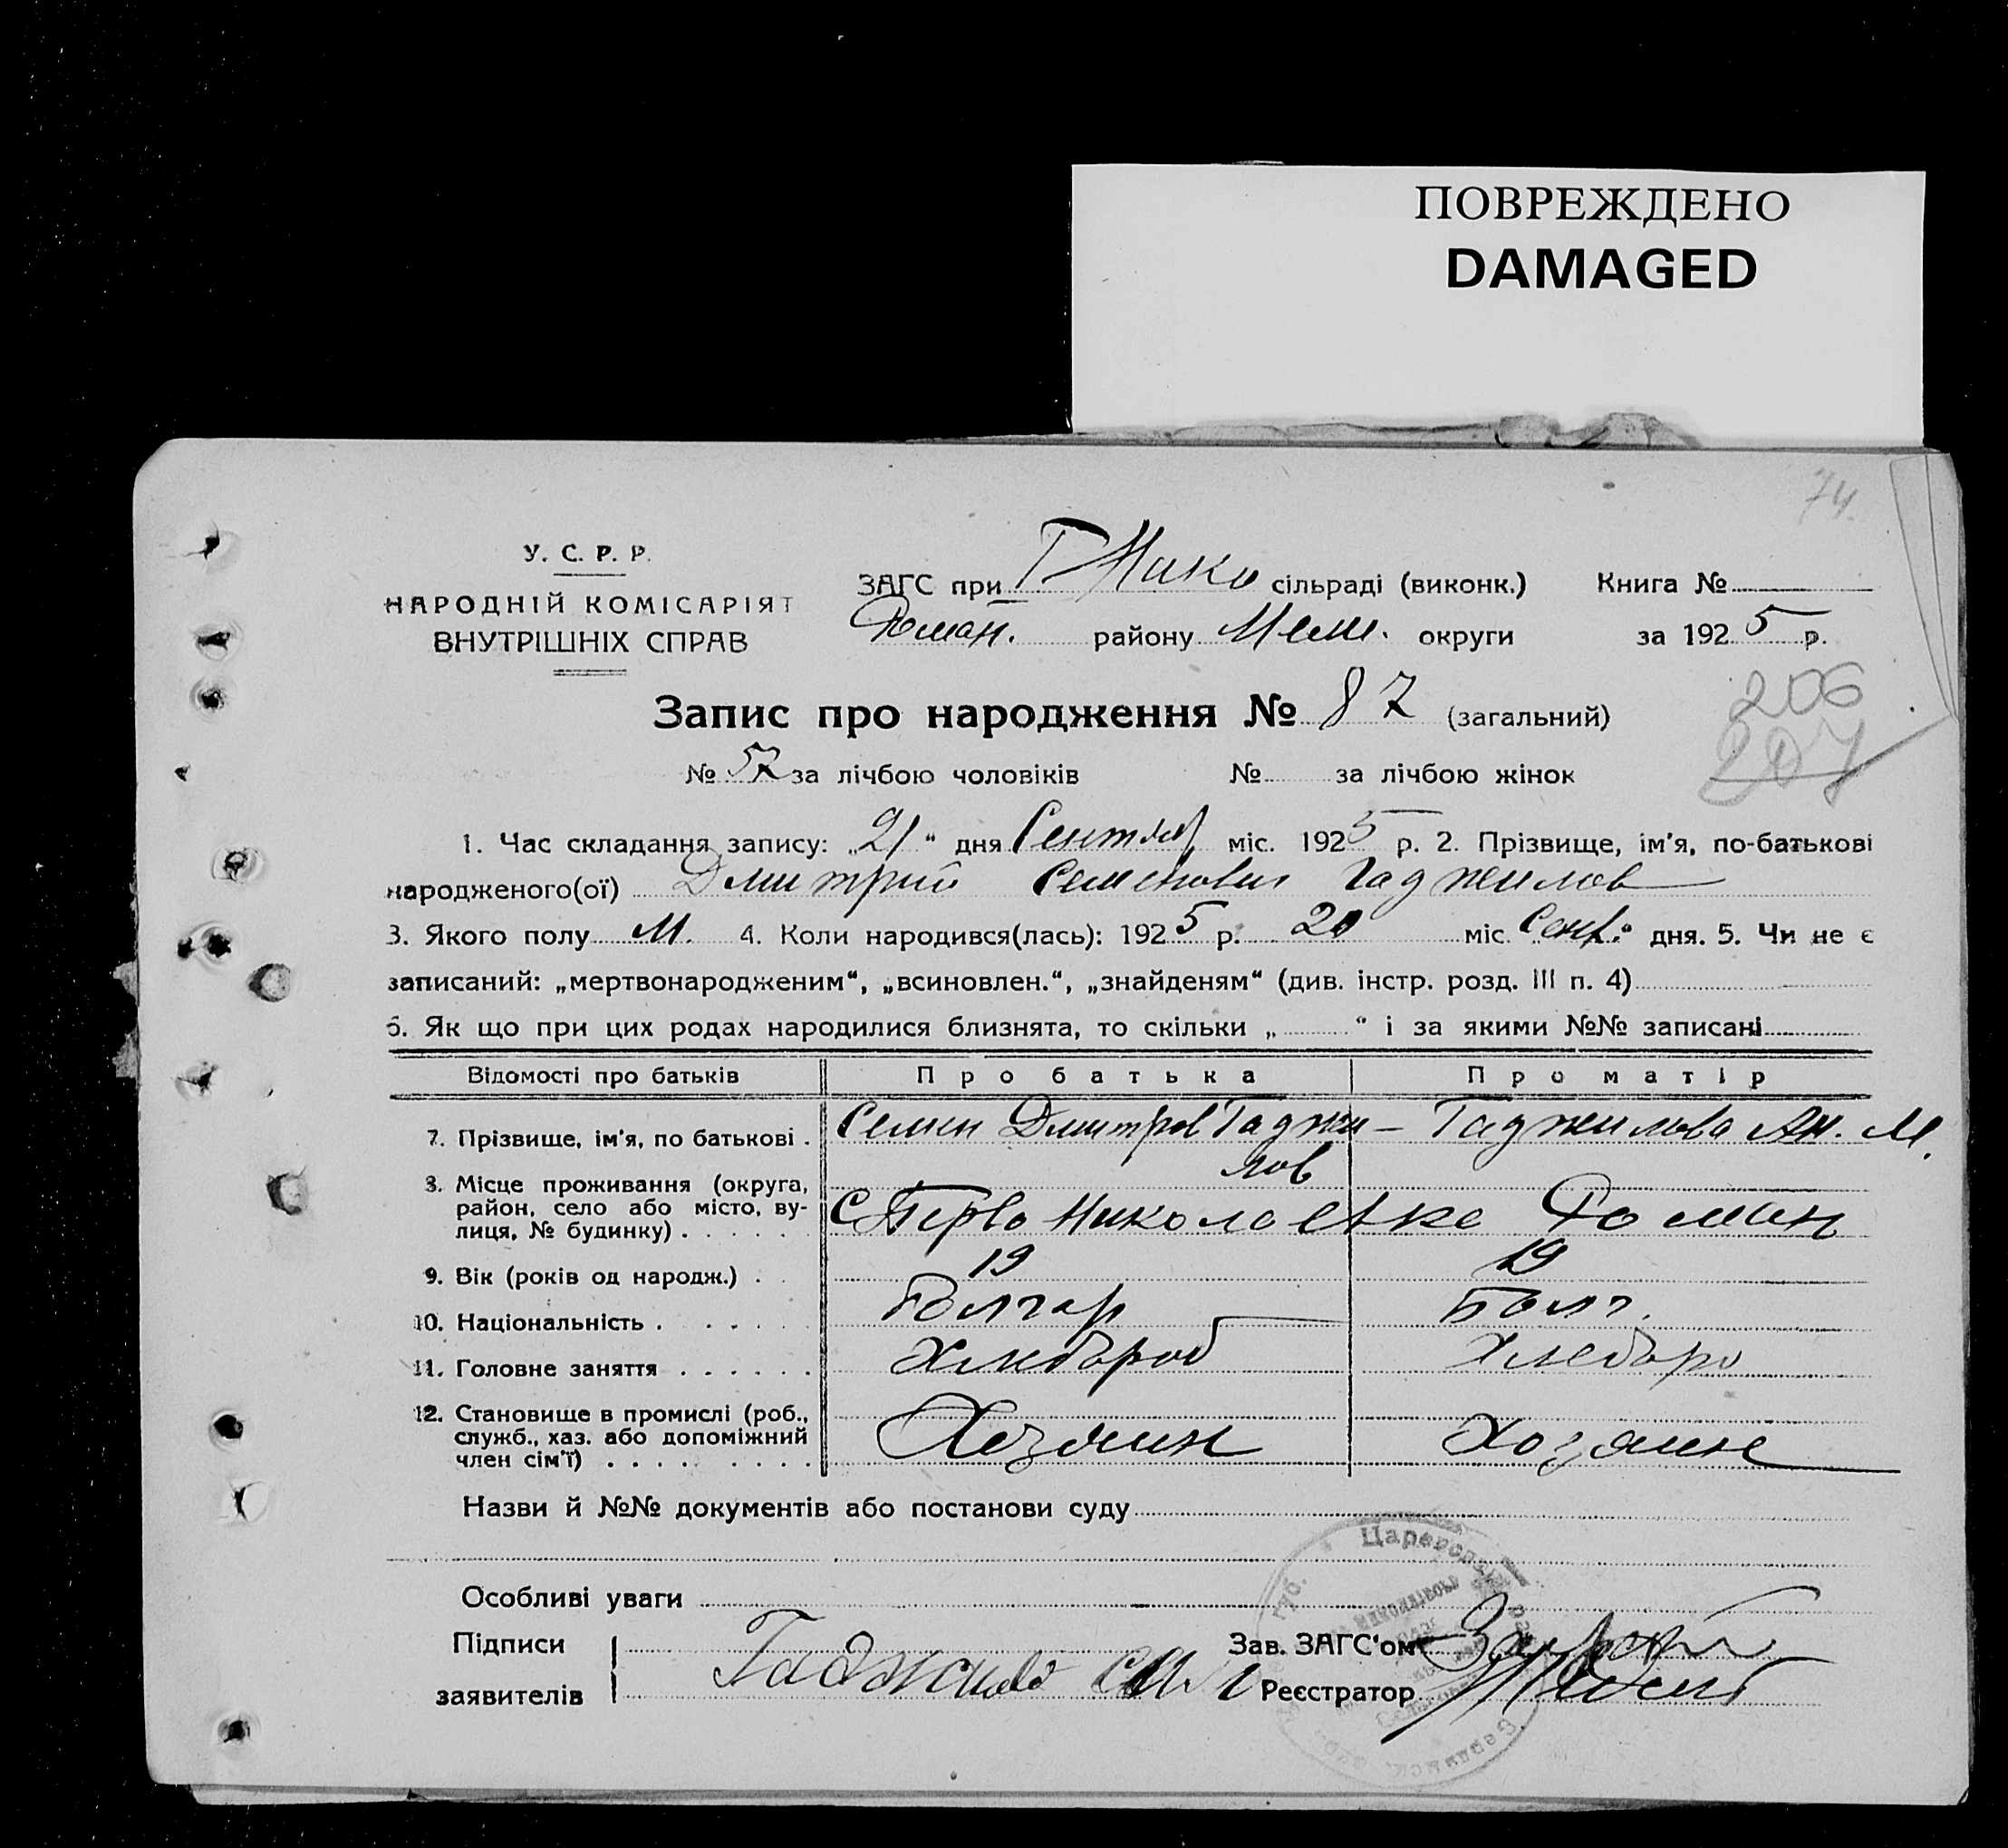 ПОВРЕЖДЕНО
DAMAGED
74.
У. С. Р. Р.
НАРОДНІЙ КОМІСАРІЯТ
ВНУТРІШНІХ СПРАВ
ЗАГС при Нико сільраді (виконк.) Книга №
Роман. району Мели. округи за 1925 р.
Запис про народження № 87 (загальний)
206
207
№ 57 за лічбою чоловіків № за лічбою жінок
1. Час складання запису: „21“ дня Сентяб міс. 1925 р. 2. Прізвище, ім'я, по-батькові
народженого(ої) Дмитрий Семенович Гаджилов
3. Якого полу М. 4. Коли народився(лась): 1925 р. 20 міс. Сент. дня. 5. Чи не є
записаний: „мертвонародженим“, „всиновлен.“, „знайденям“ (див. інстр. розд. III п. 4)
6. Як що при цих родах народилися близнята, то скільки „ “ і за якими №№ записані
Відомості про батьків Про батька Про матір
7. Прізвище, ім'я, по батькові . Семен Дмитров Гаджи- Гаджилова Ан. М.
лов
8. Місце проживання (округа, район, село або місто, ву-лиця, № будинку) . . . . . . С Перво Николаевке Романе
9. Вік (років од народж.) . . 19 19
10. Національність . . . . . . Болгар Болг.
11. Головне заняття . . . . . . Хлебороб Хлеборо
12. Становище в промислі (роб., служб., хаз. або допоміжний член сім'ї) . . . . . . . . . Хозяин Хозяине
Назви й №№ документів або постанови суду
Царевод
Особливі уваги
Підписи
заявителів
Гаджилов
Зав. ЗАГС'ом
Реєстратор